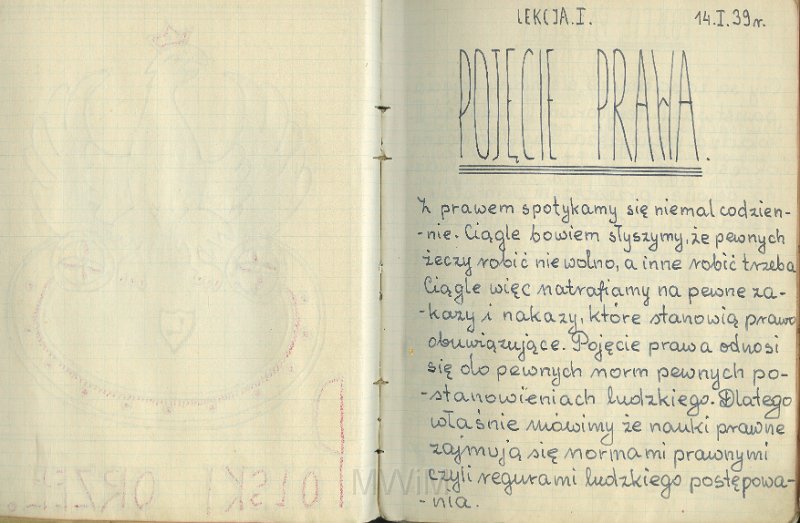 LEKCJA.I. 14.I.39r.
POJĘCIE PRAWA.
Z prawem spotykamy się niemal codzien-
-nie. Ciągle bowiem słyszymy, że pewnych
żeczy robić nie wolno, a inne robić trzeba
Ciągle więc natrafiamy na pewne za-
-kazy i nakazy, które stanowią prawo
obuwiązujące. Pojęcie prawa odnosi
się do pewnych norm pewnych po-
-stanowieniach ludzkiego. Dlatego
właśnie mówimy że nauki prawne
zajmują się normami prawnymi
czyli regurami ludzkiego postępowa-
-nia.
POLSKI ORZEŁ.
MWiM